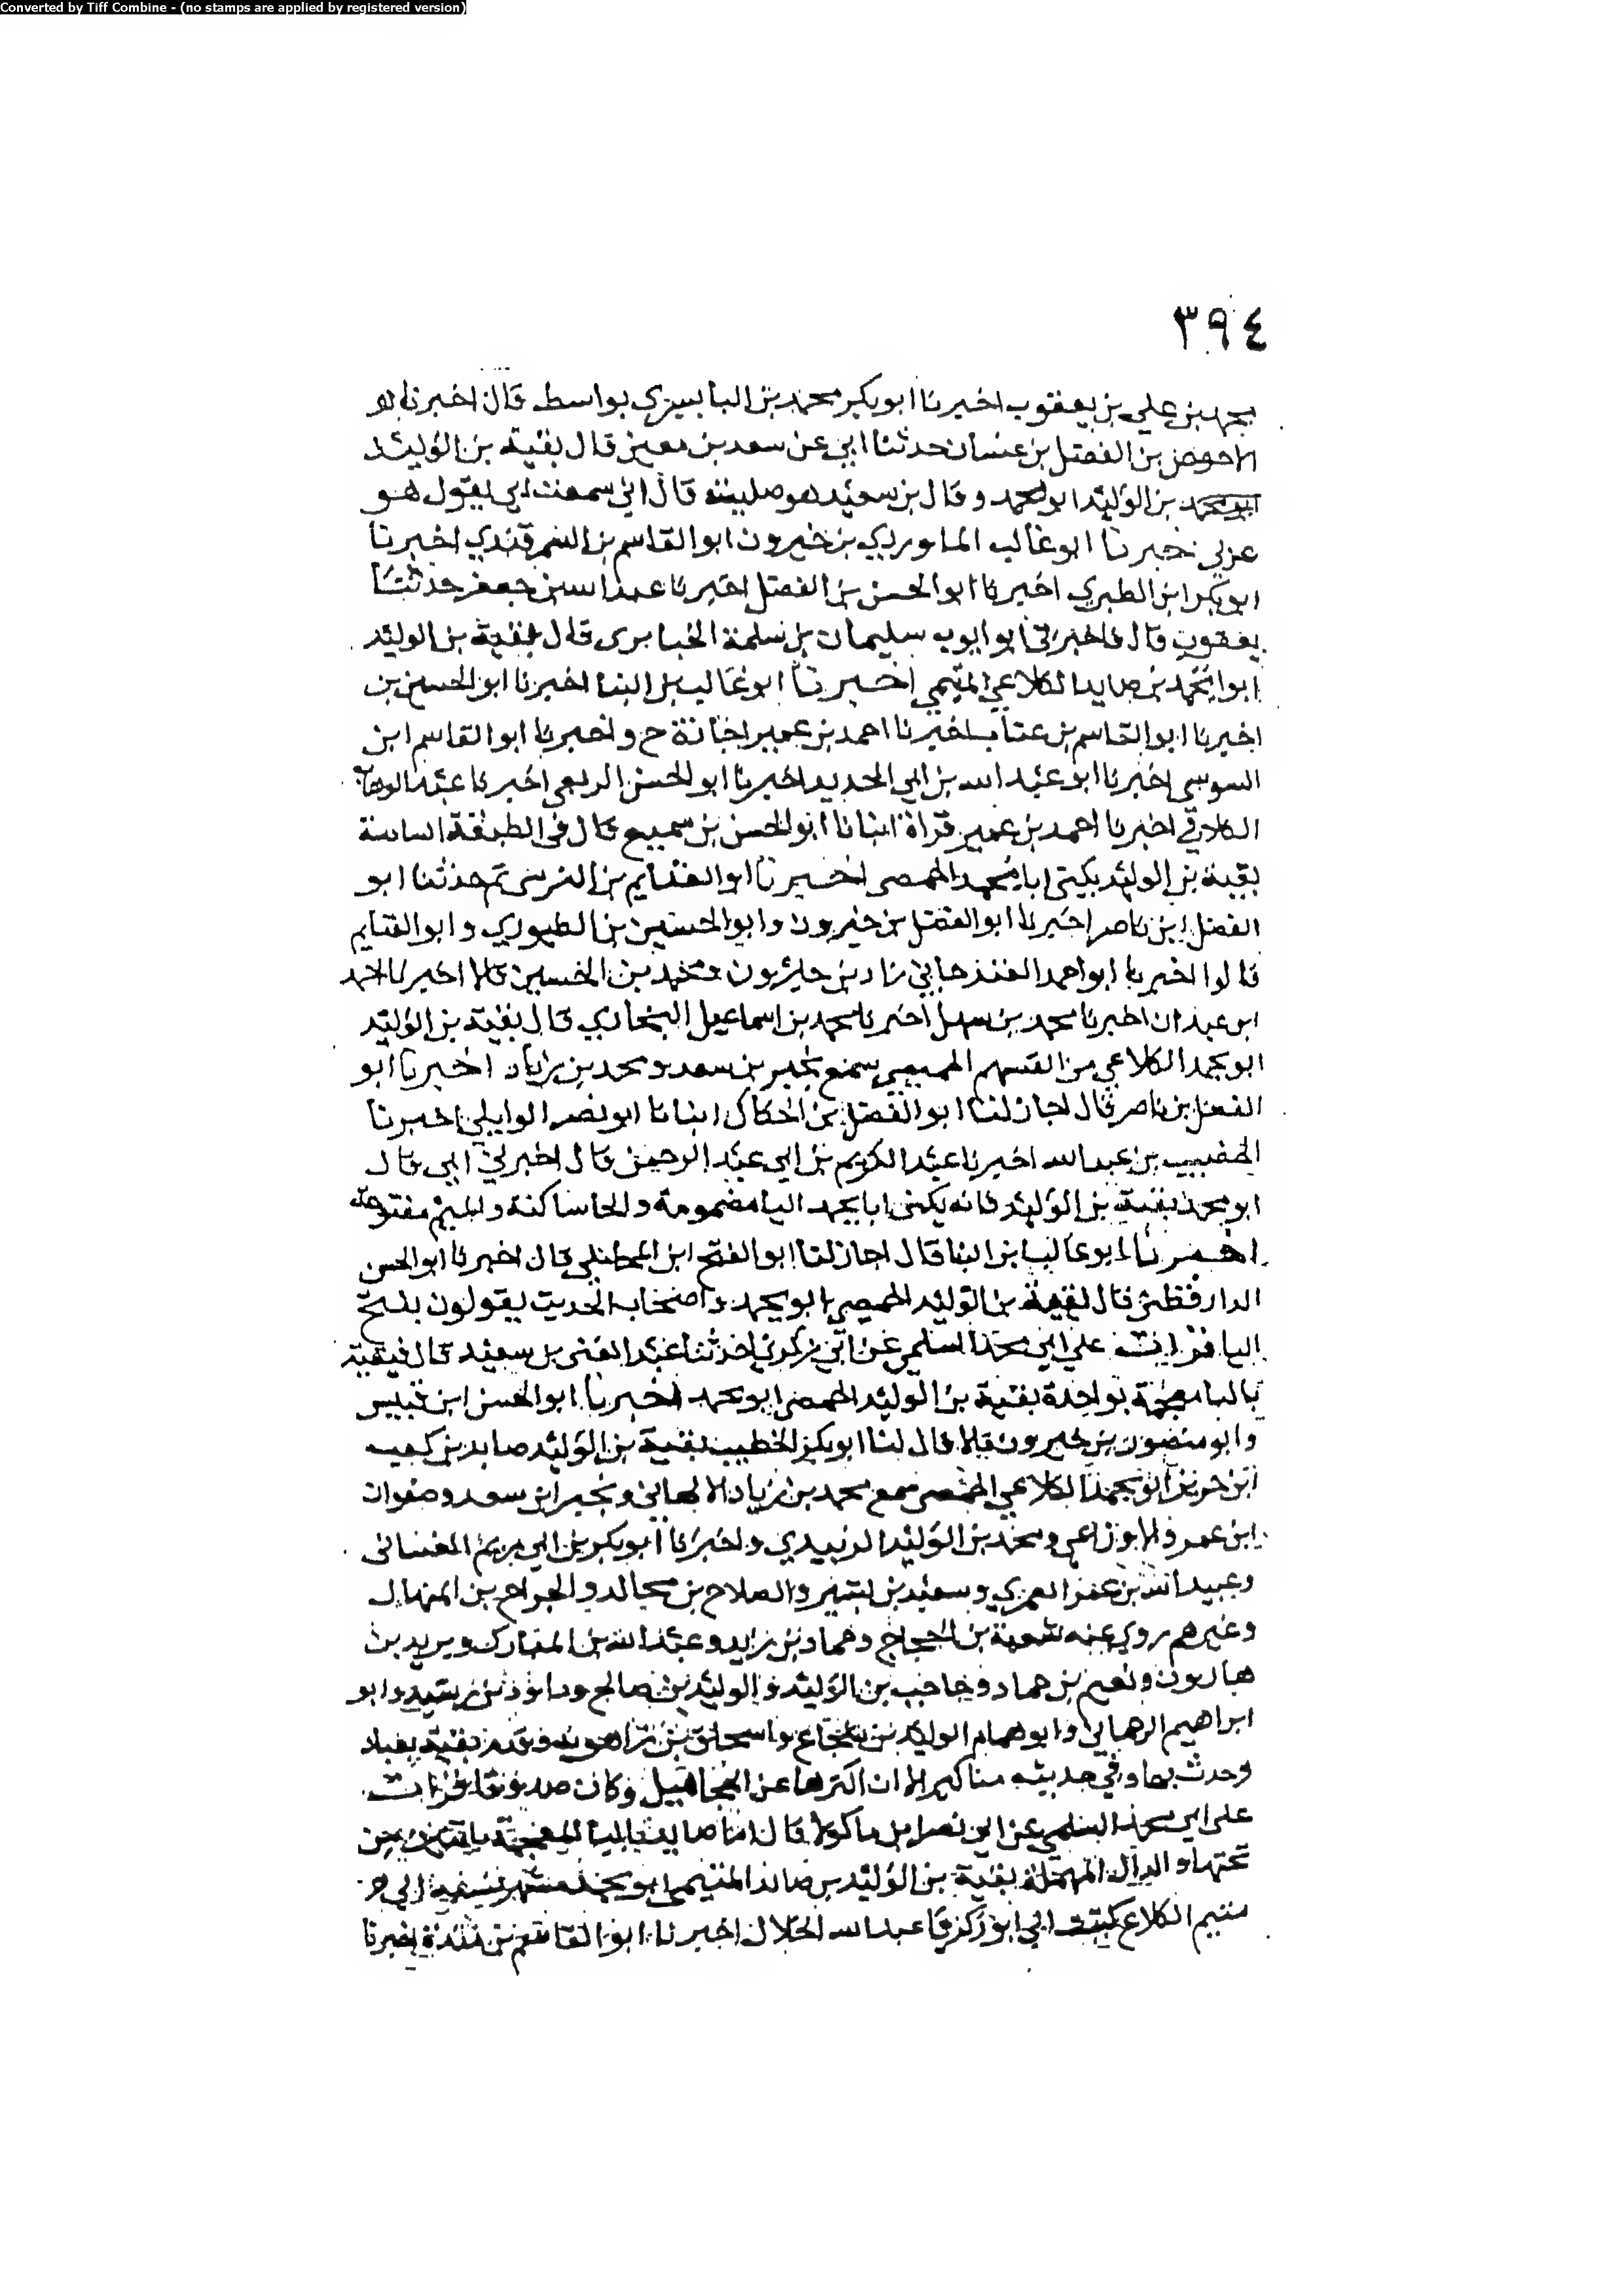 Converted by Tiff Combine - (no stamps are applied by registered version)
٣٩٤
بن علي بن يعقوب اخبرنا ابو بكر محمد بن البابسيري بواسط قال اخبرنا
الاحوص بن الفضل بن غسان حدثنا ابي عن بن معين قال بقية بن الوليد
بن الوليد ابو يحمد وقال بن سعيد قال اني سمعت ابي يقول هو
عربي اخبرنا ابو غالب الماوردي بن خيرون ابو القاسم بن السمرقندي اخبرنا
ابو بكر ابن الطبري اخبرنا ابو الحسن بن الفضل اخبرنا عبد الله بن جعفر حدثنا
يعقوب قال فاخبرني ابو ايوب سليمان بن سلمة الخبايري قال بقية بن الوليد
ابو يحمد بن صايد الكلاعي الميتمي اخبرنا ابو غالب بن البنا اخبرنا ابو الحسين بن
اخبرنا ابو القاسم بن عتاب اخبرنا احمد بن عمير اجازة ح و اخبرنا ابو القاسم ابن
السوسي اخبرنا ابو عبد الله بن ابي الحديد اخبرنا ابو الحسن الربعي اخبرنا عبد الوهاب
الكلابي اخبرنا احمد بن عمير قراة انبانا ابو الحسن بن سميع قال في الطبقة
بقية بن الوليد يكنى ابا يحمد الحمصي اخبرنا ابو الغنايم بن النرسي ثم حدثنا ابو
الفضل ابن ناصر اخبرنا ابو الفضل بن خيرون وابو الحسين بن الطيوري و ابو الغنايم
قالوا اخبرنا ابو احمد الغندجاني زاد بن خيرون ومحمد بن الحسين قالا اخبرنا احمد
ابن عبدان اخبرنا محمد بن سهل اخبرنا محمد بن اسماعيل البخاري قال بقية بن الوليد
ابو يحمد الكلاعي من انفسهم الحمصي سمع بحير بن سعد و محمد بن زياد اخبرنا ابو
الفضل بن ناصر قال اجاز لنا ابو الفضل بن الحكاك انبانا ابو نصر الوايلي اخبرنا
الخصيب بن عبد الله اخبرنا عبد الكريم بن ابي عبد الرحمن قال اخبرني ابي قال
ابو يحمد بقية بن الوليد فانه يكنى ابا يحمد اليا مضمومة والحا ساكنة والميم مفتوحة
اخبرنا ابو غالب ابن البنا قال اجاز لنا ابو الفتح ابن المحاملي قال اخبرنا ابو الحسن
الدارقطني قال بقية بن الوليد الحمصي ابو يحمد و اصحاب الحديث يقولون بفتح
اليا قرات على ابي محمد السلمي عن ابي زكريا حدثنا عبد الغني بن سعيد قال
بالبا معجمة بواحدة بقية بن الوليد الحمصي ابو يحمد اخبرنا ابو الحسن ابن قبيس
وابو منصور بن خيرون قالا قال لنا ابو بكر الخطيب بقية بن الوليد صايد بن كعب
ابن حريز ابو يحمد الكلاعي الحمصي سمع محمد بن زياد الالهاني وبحير ابن سعد وصفوان
ابن عمرو الاوزاعي ومحمد بن الوليد الزبيدي و اخبرنا ابو بكر بن ابي مريم الغساني
وعبيد الله بن عمر العمري وسعيد بن بشير والصلاح بن مجالد و الجراح بن المنهال
وغيرهم روى عنه شعبة بن الحجاج وحماد بن زايد و عبد الله بن المبارك ويزيد بن
هارون ونعيم بن حماد و حاجب بن الوليد و الوليد بن صالح وداود بن رشيد و ابو
ابراهيم الرحماني وابو همام الوليد بن شجاع و اسحاق بن راهويه وقدم بقية بغداد
وحدث بها وفي حديثه مناكير الا ان اكثرها عن المجاهيل وكان صدوقا قرات
على ابي محمد السلمي عن ابي نصر بن ماكولا قال اما صايد باليا المعجمة باثنتين من
تحتها و الدال المهملة بقية بن الوليد بن صايد الميتمي ابو يحمد
ميتم الكلاع كتب الي ابو زكريا عبد الله الخلال اخبرنا ابو القاسم بن مندة اخبرنا